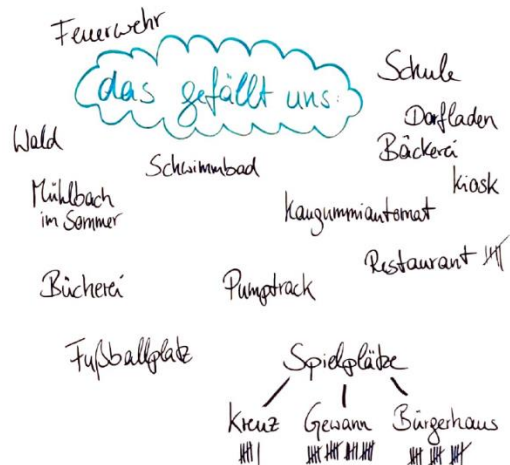 Feuerwehr
das gefällt uns:
Schule
Dorfladen
Wald
Bäckerei
Schwimmbad
Kiosk
Mühlbach
im Sommer
Kaugummiautomat
Restaurant
Bücherei
Pumptrack
Fußballplatz
Spielplätze
Kreuz Gewann Bürgerhaus